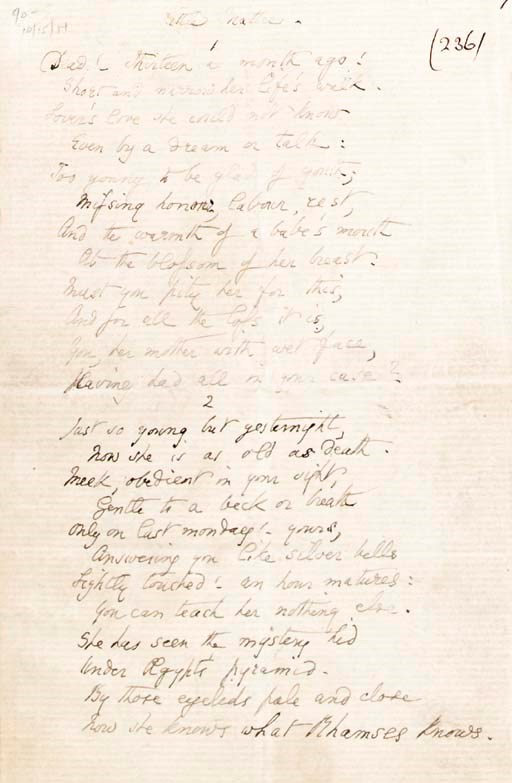 90-
10/15/51
Little Mattie.
(236)
1
Dead! Thirteen a month ago!
Short and narrow her life's walk.
Lover's love she could not know
Even by a dream or talk:
Too young to be glad of youth;
Missing honour, labour, rest,
And the warmth of a babe's mouth
At the blossom of her breast.
Must you pity her for this,
And for all the loss it is,
You, her mother with wet face,
Having had all in your case?
2
Just so young but yesternight,
Now she is as old as death.
Meek, obedient in your sight,
Gentle to a beck or breath
Only on last monday! - yours,
Answering you like silver bells
Lightly touched! - an hour matures:
You can teach her nothing else.
She has seen the mystery hid
Under Egypt's pyramid.
By those eyelids pale and close
Now she knows what Rhamses knows.